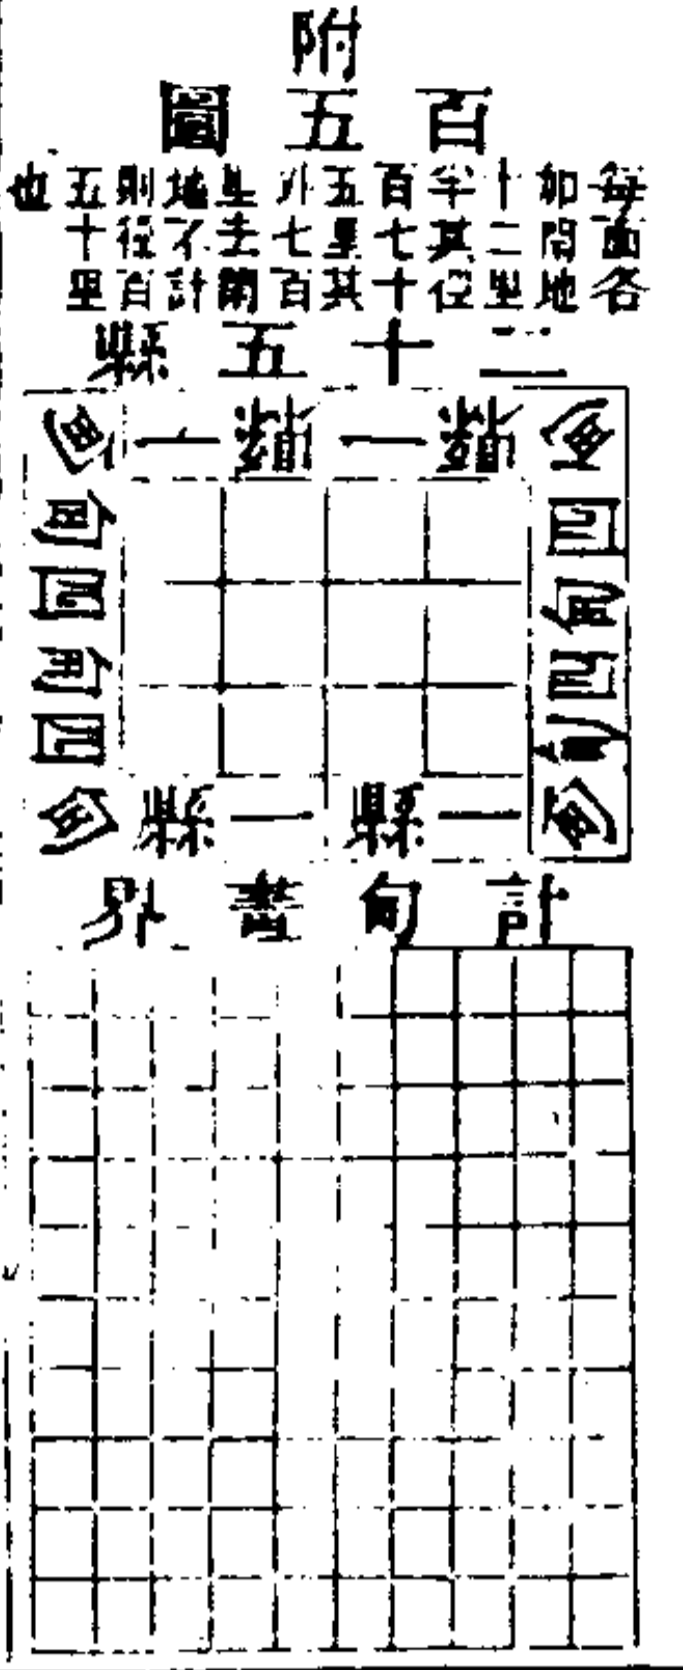 附
百五圖
每面各
加閒地
十二里
半其徑
百七十
五里其
外七百
里去閒
地不計
則徑百
五十里
也
二十五縣
甸縣一縣一甸
四甸四甸
甸四甸四
甸一縣一縣甸
計甸畫界